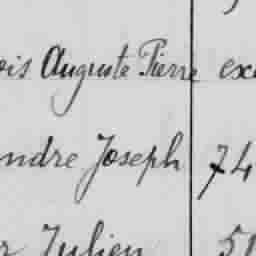 ois Auguste Pierre exc
ndre Joseph 74
r Julien 51